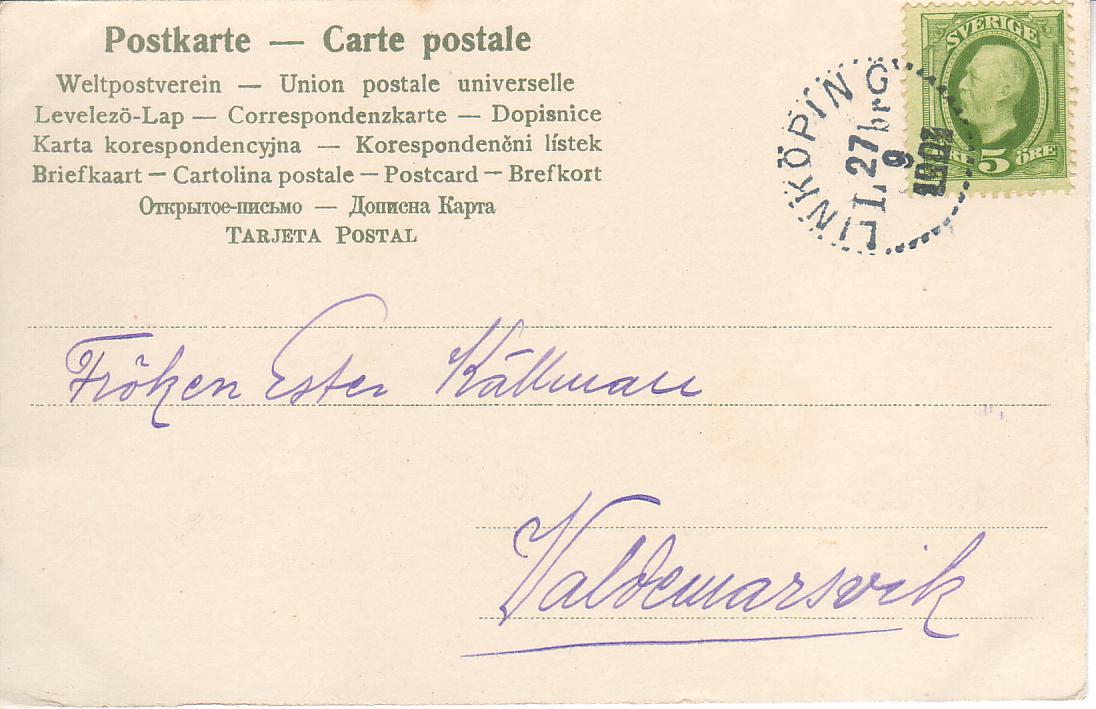 Postkarte — Carte postale
Weltpostverein — Union postale universelle
Levelezö-Lap — Correspondenzkarte — Dopisnice
Karta korespondencyjna — Korespondenčni lístek
Briefkaart — Cartolina postale — Postcard — Brefkort
Открытое-письмо — Дописна Карта
TARJETA POSTAL
SVERIGE
5 ÖRE
LINKÖPING
27
9
Fröken Ester Källman
Valdemarsvik